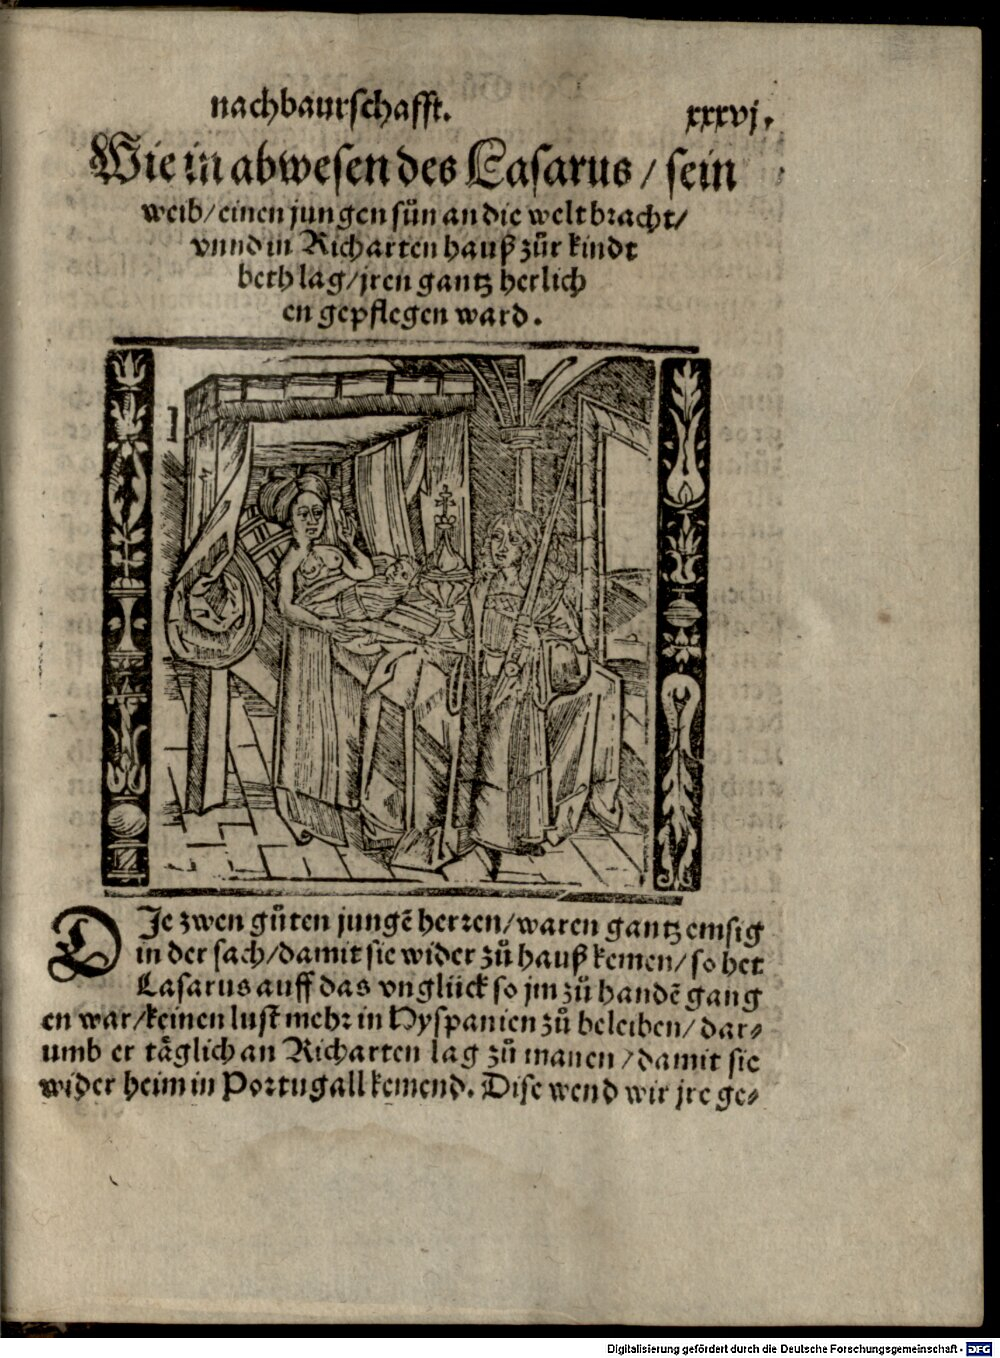 nachbaurschafft. xxxvj.
Wie in abwesen des Lasarus / sein
weib / einen jungen sün an die welt bracht /
vnnd in Richarten hauß zůr kindt
beth lag / jren gantz herlich
en gepflegen ward.
DJe zwen gůten jungē herren / waren gantz emsig
in der sach / damit sie wider zů hauß kemen / so het
Lasarus auff das vnglück so jm zů handē gang
en war / keinen lust mehr in Hyspanien zů beleiben / dar⸗
umb er täglich an Richarten lag zů manen / damit sie
wider heim in Portugall kemend. Dise wend wir jre ge⸗
Digitalisierung gefördert durch die Deutsche Forschungsgemeinschaft - DFG